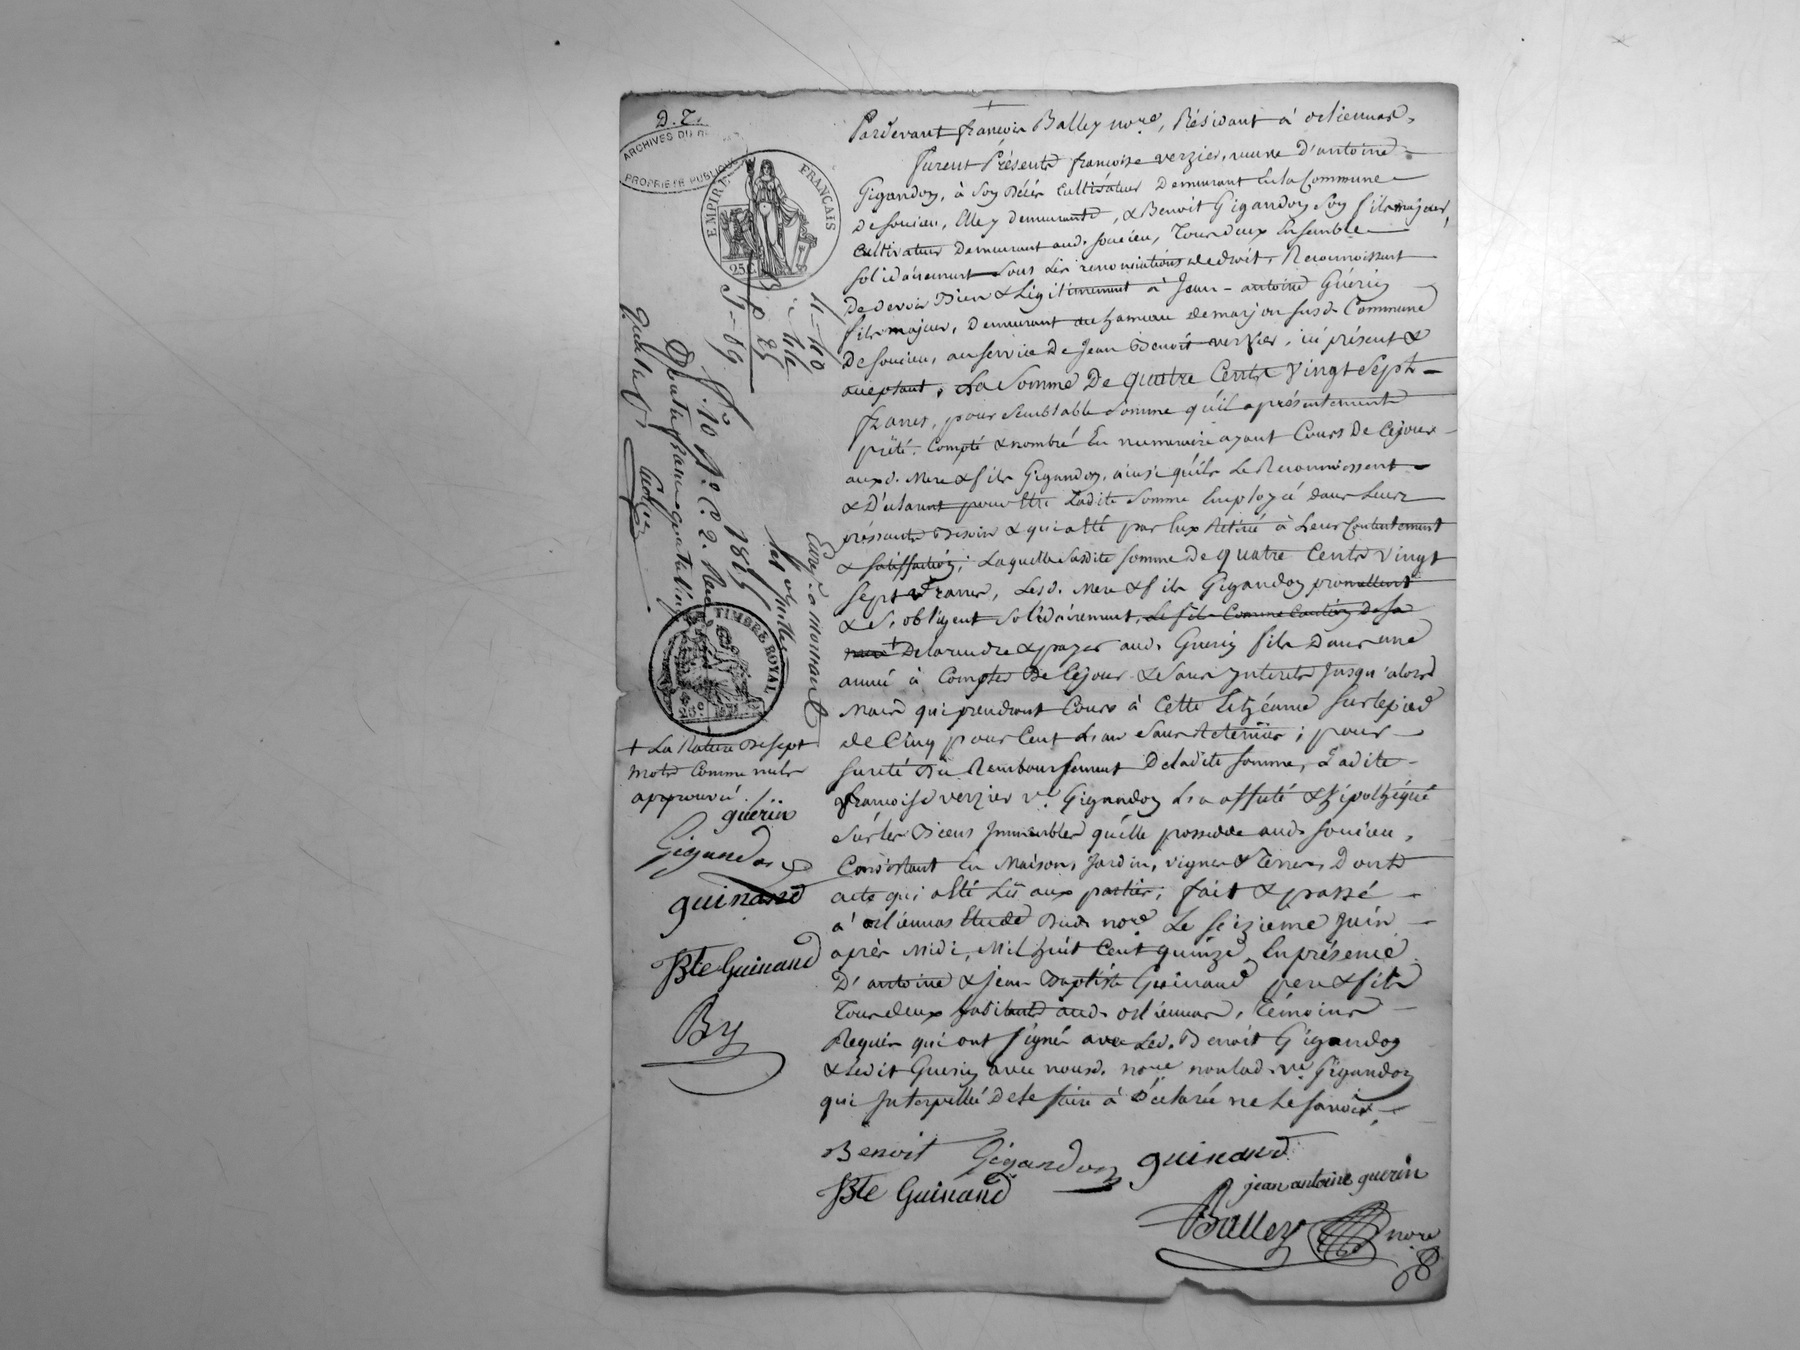 D. T.
ARCHIVES DU
PROPRIETE PUBLIQUE
EMPIRE FRANÇAIS
25 C.
Pardevant françois Balley nore, Résidant à orliennas,
furent Présents françoise verzier, veuve d'antoine
Gigandon, à son décès Cultivateur demeurant en la Commune
de soucieu, Elle y demeurante, & Benoit Gigandon son fils majeur,
Cultivateur demeurant aud. soucieu, Tous deux Ensemble
solidairement sous les renonciations de droit, Reconnoissent
de devoir Bien & Légitimement à Jean-antoine Guérin
fils majeur, demeurant au hameau de marjon susd. Commune
de soucieu, au service de Jean Benoit verzier, ici présent &
acceptant, La Somme De quatre Cents vingt Sept
francs, pour semblable somme qu'il a présentement
prêté, Compté & nombré En numeraire ayant Cours de Cejour
auxd. Mere & fils Gigandon, ainsi qu'ils Le Reconnoissent
& Déclarent pour Etre Ladite Somme Employé dans Leurs
pressants Besoin & qui a Eté par Eux Retiré à Leur Contentement
& satisfaction; Laquelle susdite somme De quatre Cents vingt
sept francs, Lesd. Mere & fils Gigandon promettent
& s'obligent solidairement, Le fils Comme Caution De sa
mere + De la rendre & payer aud. Guerin fils Dans une
année à Compter De Cejour & sans Interets Jusqu'alors
Mais qui prendront Cours à Cette Echéance sur le pied
de Cinq pour Cent L'an sans Retenue; pour
sureté du Remboursement De ladite somme, Ladite
françoise verzier ve. Gigandon L'a affecté & hipothéqué
sur les Biens Immeubles qu'elle possede aud. soucieu,
Consistant En Maison, Jardin, vignes & Terres, Dont
acte qui a Eté Lu aux parties; fait & passé
à orliennas Etude Dud. nore Le seizieme Juin
après Midi, Mil huit Cent quinze, En présence
D'antoine & jean Baptiste Guinand pere & fils
Tous deux habitants aud. orliennas, Témoins
Requis qui ont signé avec Led. Benoit Gigandon
& Ledit Guerin avec nousd. nore non Lad. ve. Gigandon
qui Interpellée De le faire à Déclaré ne Le savoir,
Benoit Gigandon guinand
JBte Guinand
jean antoine guerin
Balley nore
4-40
-44
25
5-09
1815
TIMBRE ROYAL
25c
+ La Rature De sept
mots Comme nuls
approuvé.
guerin
Gigandon
guinand
JBte Guinand
By